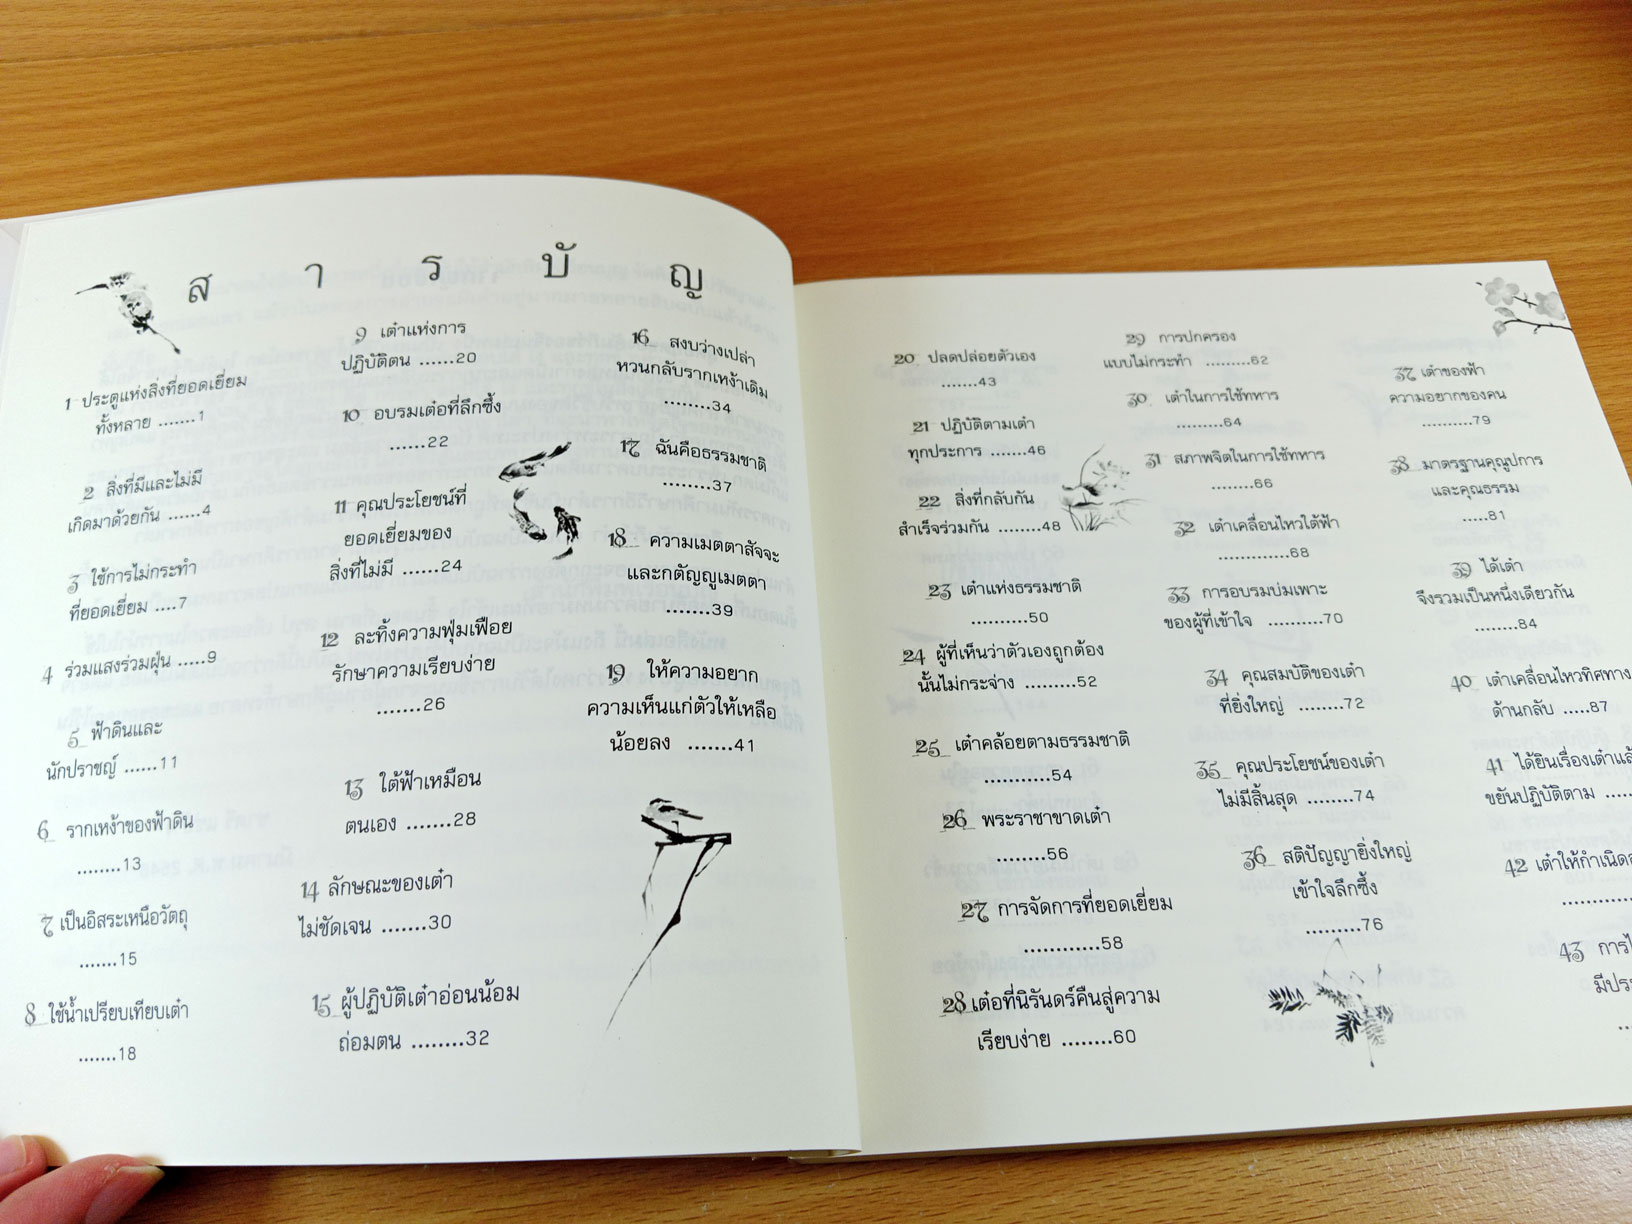 สารบัญ
1 ประตูแห่งสิ่งที่ยอดเยี่ยม
ทั้งหลาย .......1
2 สิ่งที่มีและไม่มี
เกิดมาด้วยกัน ......4
3 ใช้การไม่กระทำ
ที่ยอดเยี่ยม ....7
4 ร่วมแสงร่วมฝุ่น .....9
5 ฟ้าดินและ
นักปราชญ์ ......11
6 รากเหง้าของฟ้าดิน
........13
7 เป็นอิสระเหนือวัตถุ
.......15
8 ใช้น้ำเปรียบเทียบเต๋า
.......18
9 เต๋าแห่งการ
ปฏิบัติตน ......20
10 อบรมเต๋อที่ลึกซึ้ง
.......22
11 คุณประโยชน์ที่
ยอดเยี่ยมของ
สิ่งที่ไม่มี ......24
12 ละทิ้งความฟุ่มเฟือย
รักษาความเรียบง่าย
.......26
13 ใต้ฟ้าเหมือน
ตนเอง .......28
14 ลักษณะของเต๋า
ไม่ชัดเจน .......30
15 ผู้ปฏิบัติเต๋าอ่อนน้อม
ถ่อมตน ........32
16 สงบว่างเปล่า
หวนกลับรากเหง้าเดิม
........34
17 ฉันคือธรรมชาติ
........37
18 ความเมตตาสัจจะ
และกตัญญูเมตตา
........39
19 ให้ความอยาก
ความเห็นแก่ตัวให้เหลือ
น้อยลง .......41
20 ปลดปล่อยตัวเอง
.......43
21 ปฏิบัติตามเต๋า
ทุกประการ .......46
22 สิ่งที่กลับกัน
สำเร็จร่วมกัน ........48
23 เต๋าแห่งธรรมชาติ
..........50
24 ผู้ที่เห็นว่าตัวเองถูกต้อง
นั้นไม่กระจ่าง .........52
25 เต๋าคล้อยตามธรรมชาติ
............54
26 พระราชาขาดเต๋า
.........56
27 การจัดการที่ยอดเยี่ยม
............58
28 เต๋อที่นิรันดร์คืนสู่ความ
เรียบง่าย ........60
29 การปกครอง
แบบไม่กระทำ .........62
30 เต๋าในการใช้ทหาร
.........64
31 สภาพจิตในการใช้ทหาร
........66
32 เต๋าเคลื่อนไหวใต้ฟ้า
............68
33 การอบรมบ่มเพาะ
ของผู้ที่เข้าใจ ..........70
34 คุณสมบัติของเต๋า
ที่ยิ่งใหญ่ ........72
35 คุณประโยชน์ของเต๋า
ไม่มีสิ้นสุด ........74
36 สติปัญญายิ่งใหญ่
เข้าใจลึกซึ้ง
.........76
37 เต๋าของฟ้า
ความอยากของคน
..........79
38 มาตรฐานคุณูปการ
และคุณธรรม
.....81
39 ได้เต๋า
จึงรวมเป็นหนึ่งเดียวกัน
.........84
40 เต๋าเคลื่อนไหวทิศทาง
ด้านกลับ .....87
41 ได้ยินเรื่องเต๋า
ขยันปฏิบัติตาม .....
42 เต๋าให้กำเนิด
43